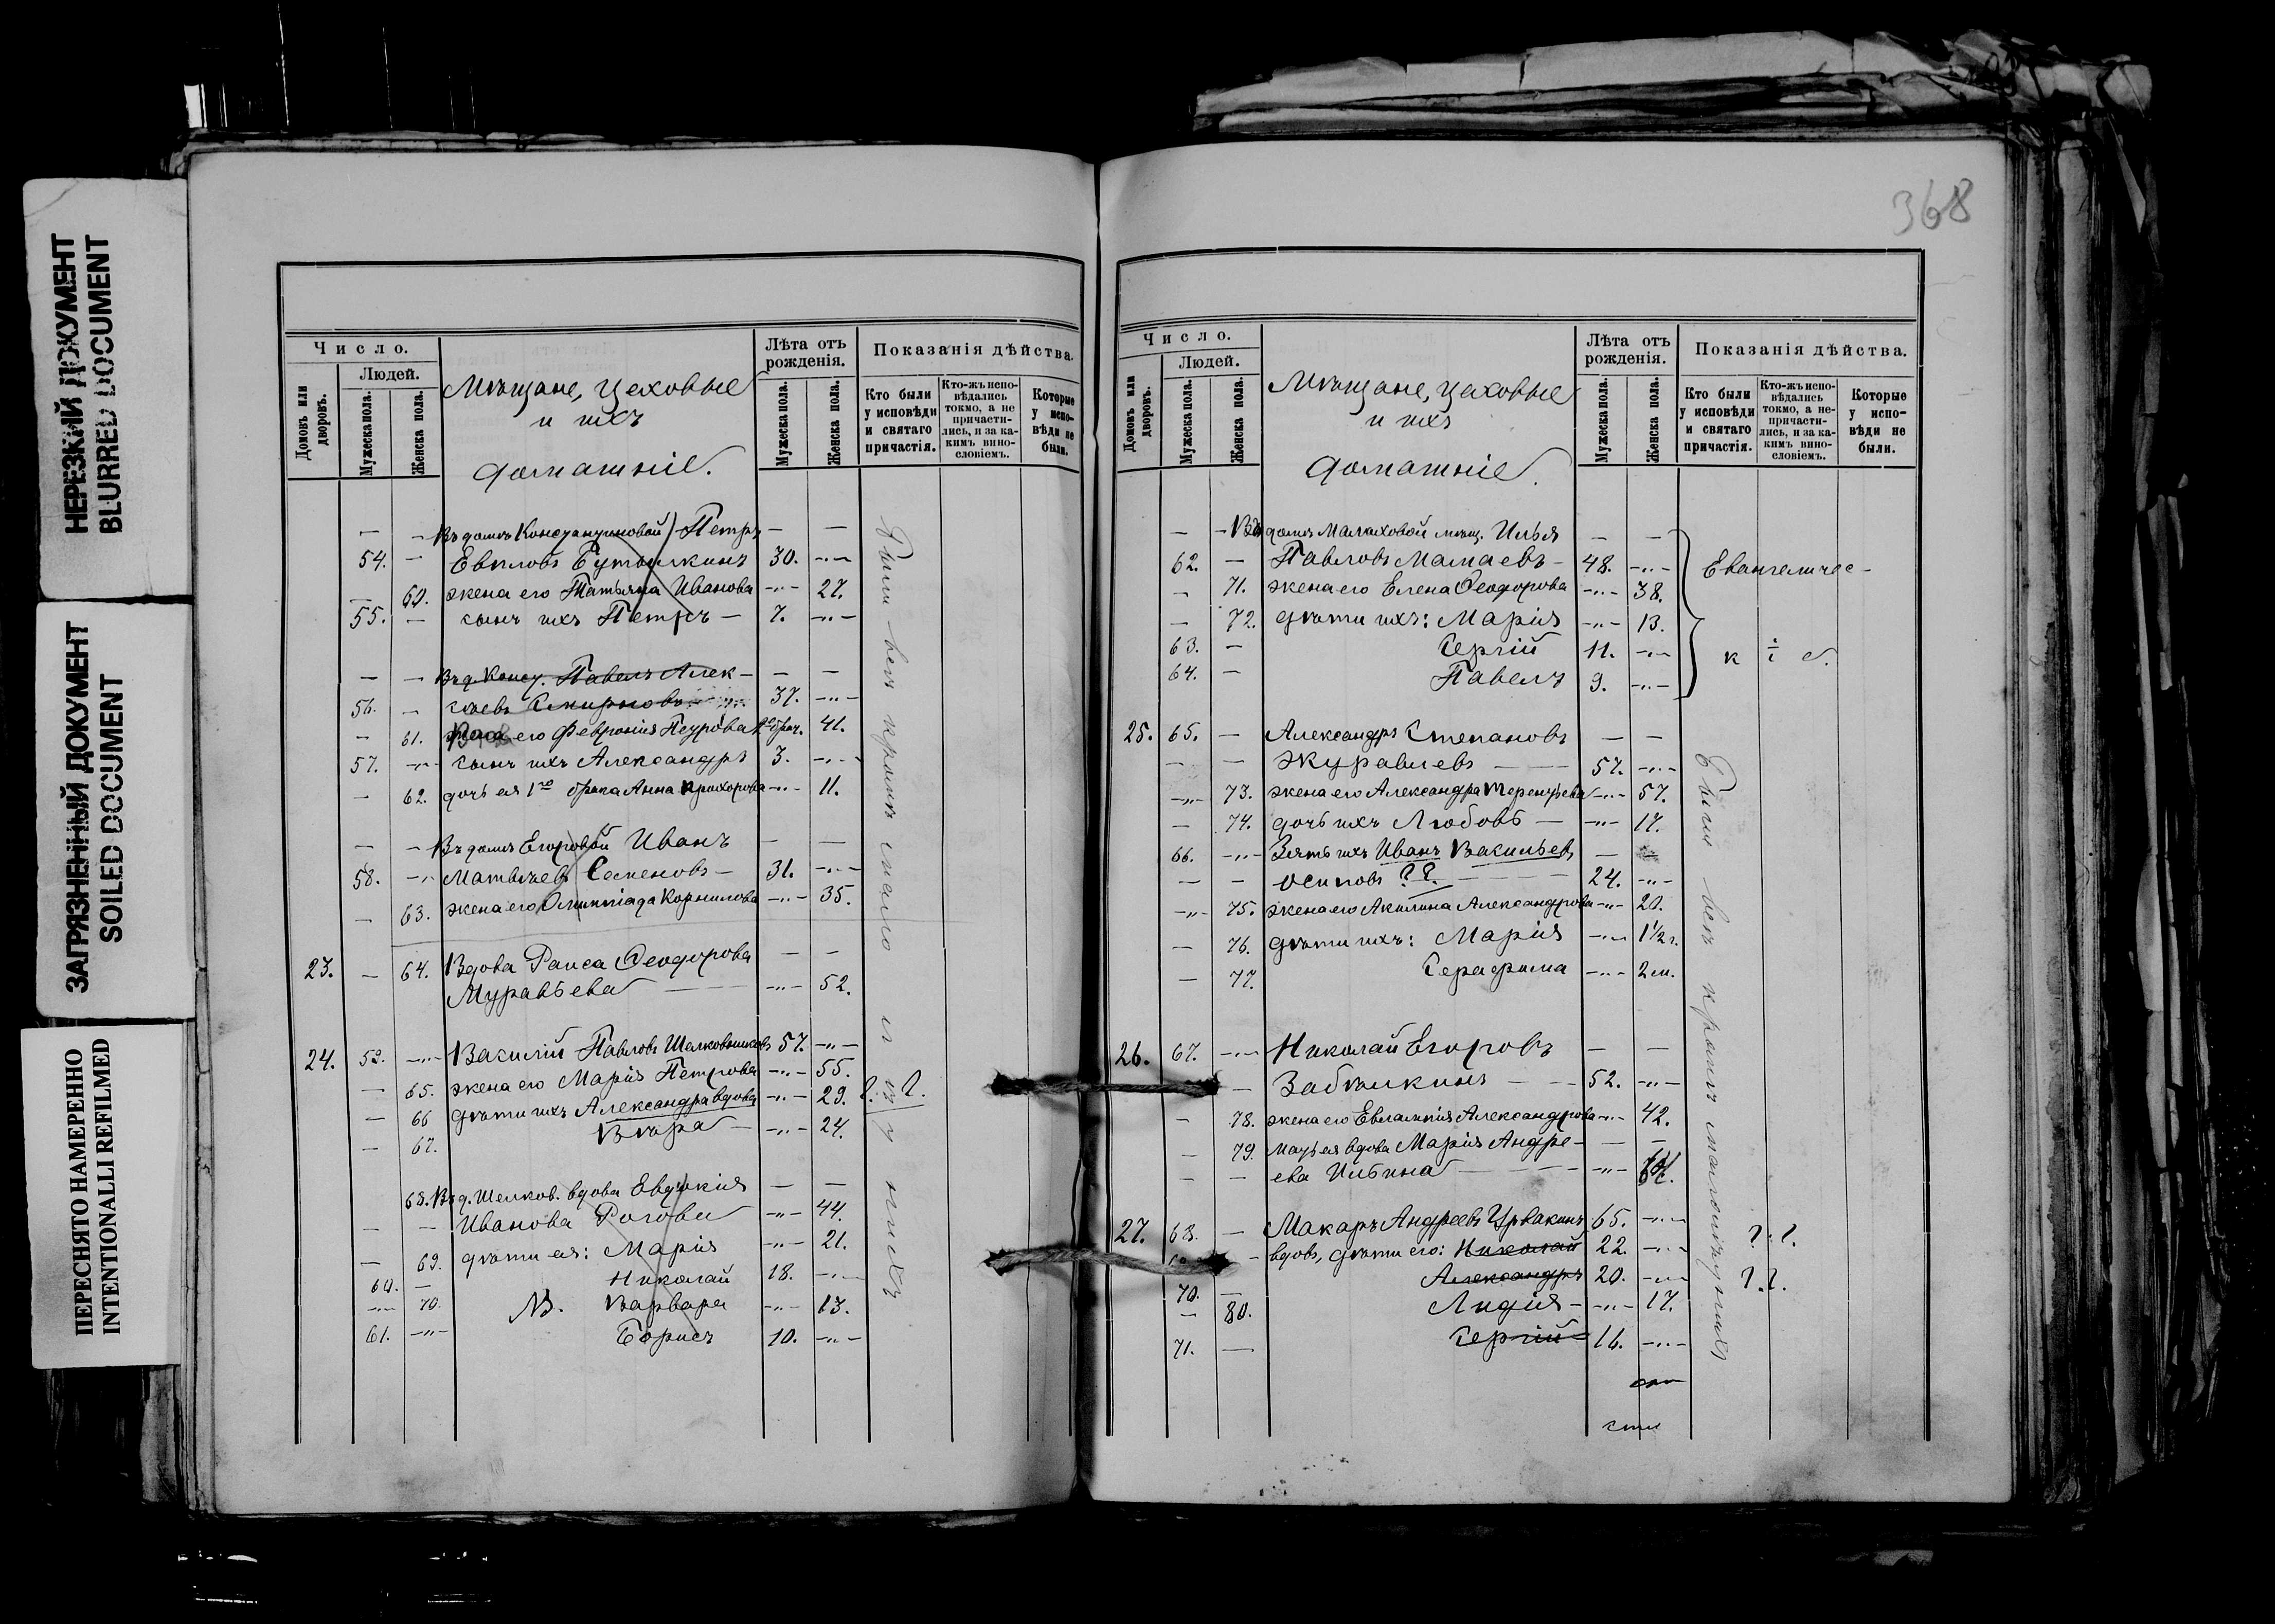 НЕРЕЗКИЙ ДОКУМЕНТ
BLURRED DOCUMENT
ЗАГРЯЗНЕННЫЙ ДОКУМЕНТ
SOILED DOCUMENT
ПЕРЕСНЯТО НАМЕРЕННО
INTENTIONALLI REFILMED
Число.
Людей.
Домовъ или дворовъ.
Мужеска пола.
Женска пола.
Мѣщане, цеховые
и ихъ
домашніе.
Лѣта отъ рожденія.
Мужеска пола.
Женска пола.
Показанія дѣйства.
Кто были у исповѣди и святаго причастія.
Кто-жъ исповѣдались токмо, а не причастились, и за какимъ винословіемъ.
Которые у исповѣди не были.
— — Въ домѣ Константиновой) Петръ — —
54. — Евпловъ Бутылкинъ 30. -"-
— 60. жена его Татьяна Иванова -"- 27.
55. — сынъ ихъ Петръ — 7. -"-
— — Въ д. Конст. Павелъ Алек- — —
56. — сѣевъ Смирновъ 37. -"-
— 61. жена его Февронія Петрова 2го брач. 41.
57. -"- сынъ ихъ Александръ 3. -"-
— 62. дочь ея 1го брака Анна Прохорова -"- 11.
— — Въ домѣ Егоровой Иванъ — —
58. -"- Матвѣевъ Семеновъ — 31. -"-
— 63. жена его Олимпіада Корнилова -"- 35.
23. — 64. Вдова Раиса Ѳеодорова — —
Муравьева -"- 52.
24. 59. -"- Василій Павловъ Шелковниковъ 57. -"-
— 65. жена его Марія Петрова -"- 55.
— 66 дѣти ихъ Александра вдова -"- 29. ?. ?.
— 67. Вѣра — -"- 24.
68. Въ д. Шелков. вдова Евдокія — —
— — Иванова Рогова -"- 44.
— 69. дѣти ея: Марія -"- 21.
60. — Николай 18. -"-
-"- 70. NB. Варвара -"- 13.
61. -"- Борисъ 10. -"-
Были всѣ кромѣ
368
Число.
Людей.
Домовъ или дворовъ.
Мужеска пола.
Женска пола.
Мѣщане, цеховые
и ихъ
домашніе.
Лѣта отъ рожденія.
Мужеска пола.
Женска пола.
Показанія дѣйства.
Кто были у исповѣди и святаго причастія.
Кто-жъ исповѣдались токмо, а не-причастились, и за какимъ винословіемъ.
Которые у исповѣди не были.
— — Въ домѣ Малаховой мѣщ. Илья — —
62. — Павловъ Мамаевъ — 48. -"- Евангеличес-
— 71. жена его Елена Ѳеодорова -"- 38.
— 72. дѣти ихъ: Марія -"- 13.
63. — Сергій 11. -"- кіе.
64. — Павелъ 9. -"-
25. 65. — Александръ Степановъ — —
— — Журавлевъ 57. -"-
-"- 73. жена его Александра Терентьева -"- 57.
— 74. дочь ихъ Любовь — -"- 17.
66. -"- Зять ихъ Иванъ Васильевъ —
— — Осиповъ ??. 24. -"-
-"- 75. жена его Акилина Александрова -"- 20.
— 76. дѣти ихъ: Марія -"- 1½ г.
— 77. Серафима -"- 2 м.
26. 67. -"- Николай Егоровъ — —
— Забѣлкинъ — 52. -"-
— 78. жена его Евлампія Александрова -"- 42.
— 79. мать ея вдова Марія Андре- — —
— — ева Ильина -"-
27. 68. — Макаръ Андреевъ Урвакинъ 65. -"- ?.?.
— вдовъ, дѣти его: Николай 22. -"-
70. — Александръ 20. -"- ?.?.
— 80. Лидія — -"- 17.
71. — Сергій 16. -"-
Были всѣ кромѣ малолѣтнихъ